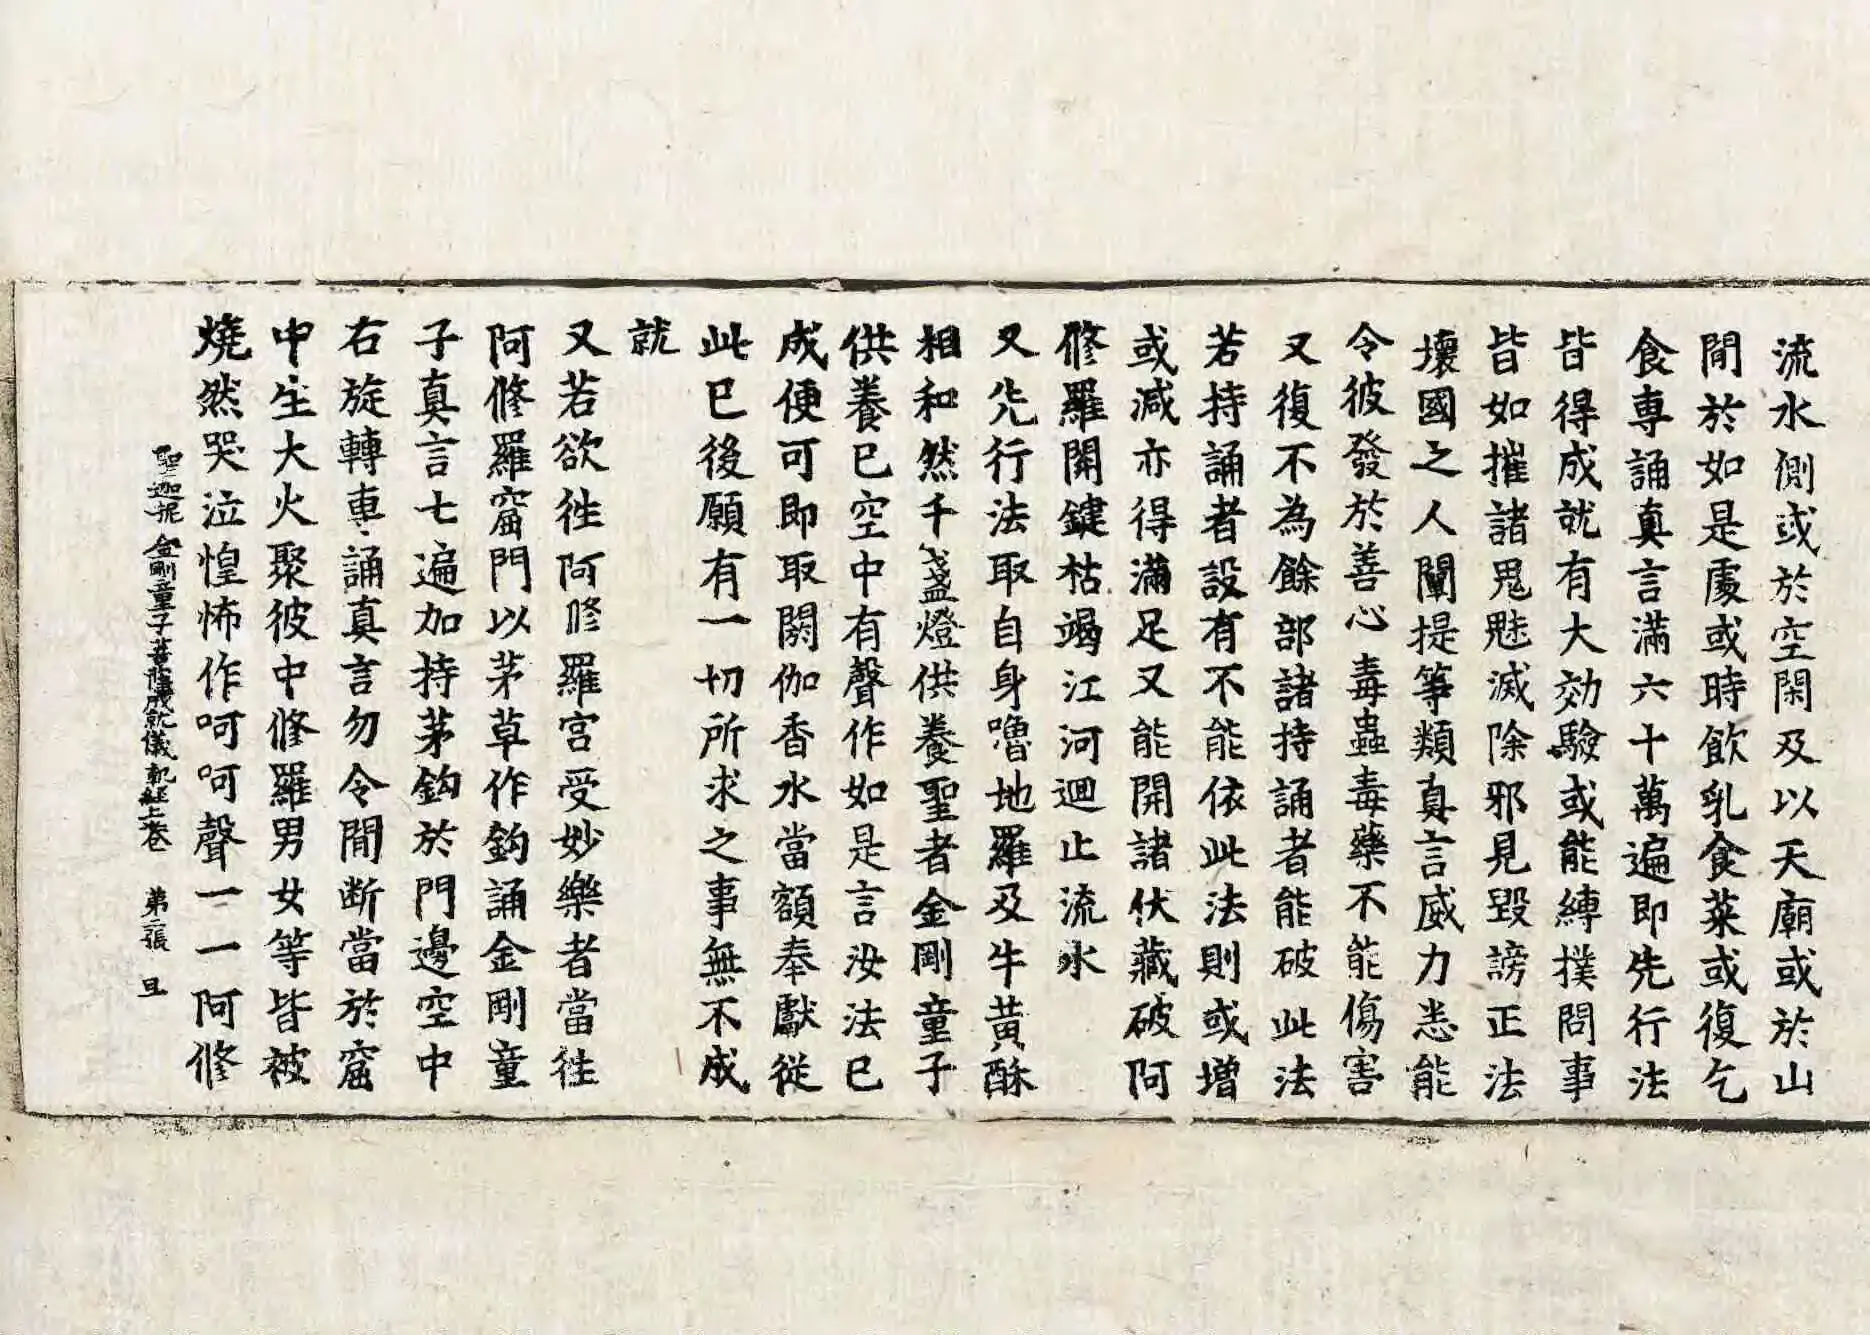 流水側或於空閑及以天廟或於山
間於如是處或時飲乳食菜或復乞
食専誦真言滿六十萬遍即先行法
皆得成就有大効驗或能縛撲問事
皆如摧諸鬼魅滅除邪見毀謗正法
壞國之人闡提等類真言威力悉能
令彼發於善心毒蟲毒藥不能傷害
又復不為餘部諸持誦者能破此法
若持誦者設有不能依此法則或增
或減亦得滿足又能開諸伏藏破阿
修羅開鍵枯竭江河迴止流水
又先行法取自身嚕地羅及牛黃酥
相和然千盞燈供養聖者金剛童子
供養已空中有聲作如是言汝法已
成便可即取閼伽香水當額奉獻從
此已後願有一切所求之事無不成
就
又若欲往阿修羅宮受妙樂者當往
阿修羅窟門以茅草作鈎誦金剛童
子真言七遍加持茅鈎於門邊空中
右旋轉車誦真言勿令間断當於窟
中生大火聚彼中修羅男女等皆被
燒然哭泣惶怖作呵呵聲一一阿修
聖迦抳金剛童子菩薩成就儀軌經上卷 第二張 旦